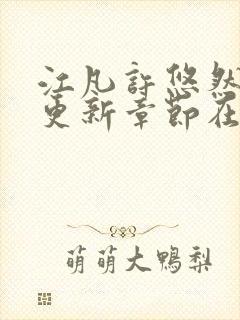 江凡许悠然
更新章节在
萌萌大鸭梨